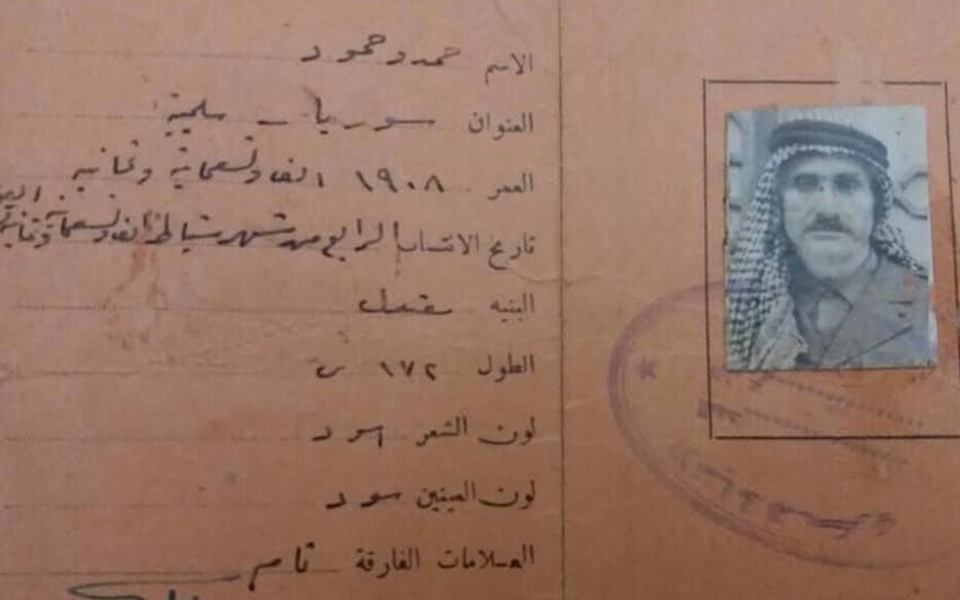 الاسم حمد وحمود
العنوان سوريا - سلمية
العمر ١٩٠٨ الف وتسعماية وثمانية
تاريخ الانتساب الرابع من شهر شباط الف وتسعماية
البنيه معتدل
الطول ١٧٢ س
لون الشعر اسود
لون العينين سود
العلامات الفارقة تام